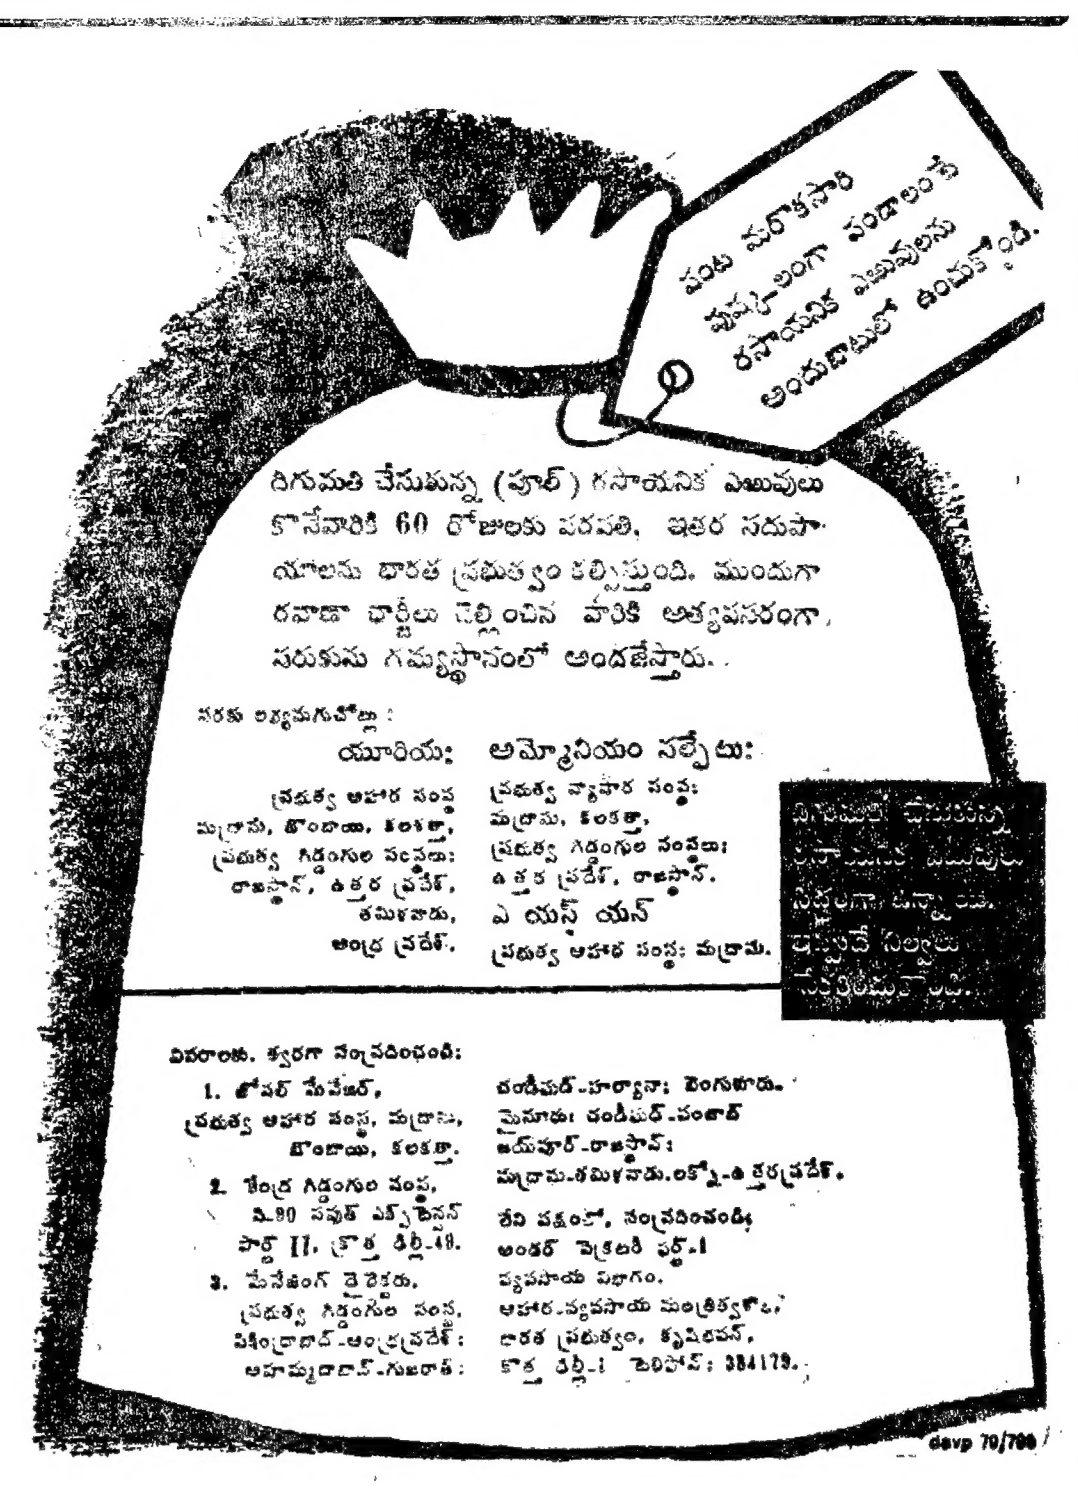 పంట మరొకసారి
పుష్కలంగా పండాలంటే
రసాయనిక ఎఱువులను
అందుబాటులో ఉంచుకోండి.
దిగుమతి చేసుకున్న (పూల్) రసాయనిక ఎఱువులు
కొనేవారికి 60 రోజులకు పరపతి, ఇతర సదుపా-
యాలను భారత ప్రభుత్వం కల్పిస్తుంది. ముందుగా
రవాణా ఛార్జీలు చెల్లించిన వారికి అత్యవసరంగా
సరుకును గమ్యస్థానంలో అందజేస్తారు.
సరకు లభ్యమగుచోట్లు :
యూరియ:
ప్రభుత్వ ఆహార సంస్థ
మద్రాసు, బొంబాయి, కలకత్తా,
ప్రభుత్వ గిడ్డంగుల సంస్థలు:
రాజస్థాన్, ఉత్తర ప్రదేశ్,
తమిళనాడు,
ఆంధ్ర ప్రదేశ్.
అమ్మోనియం సల్ఫేటు:
ప్రభుత్వ వ్యాపార సంస్థ:
మద్రాసు, కలకత్తా,
ప్రభుత్వ గిడ్డంగుల సంస్థలు:
ఉత్తర ప్రదేశ్, రాజస్థాన్.
ఎ యస్ యన్
ప్రభుత్వ ఆహార సంస్థ: మద్రాసు.
దిగుమతి చేసుకున్న
రసాయనిక ఎఱువులు
సిద్ధంగా ఉన్నాయి.
ఇప్పుడే నిల్వలు
సేకరించుకొండి.
వివరాలకు, త్వరగా సంప్రదించండి:
1. జోనల్ మేనేజర్,
ప్రభుత్వ ఆహార సంస్థ, మద్రాసు,
బొంబాయి, కలకత్తా.
2. కేంద్ర గిడ్డంగుల సంస్థ,
సి-90 సవుత్ ఎక్స్‌టెన్షన్
పార్ట్ II, క్రొత్త ఢిల్లీ-49.
3. మేనేజింగ్ డైరెక్టరు,
ప్రభుత్వ గిడ్డంగుల సంస్థ,
సికింద్రాబాద్-ఆంధ్రప్రదేశ్:
అహమ్మదాబాద్-గుజరాత్:
చండీఘడ్-హర్యానా: బెంగుళూరు-
మైసూరు: చండీఘడ్-పంజాబ్
జయ్‌పూర్-రాజస్థాన్:
మద్రాసు-తమిళనాడు. లక్నో-ఉత్తరప్రదేశ్.
లేని పక్షంలో, సంప్రదించండి:
అండర్ సెక్రెటరీ ఫర్ట్-I
వ్యవసాయ విభాగం.
ఆహార-వ్యవసాయ మంత్రిత్వశాఖ,
భారత ప్రభుత్వం, కృషిభవన్,
కొత్త ఢిల్లీ-1 టెలిఫోన్: 384179.
davp 70/